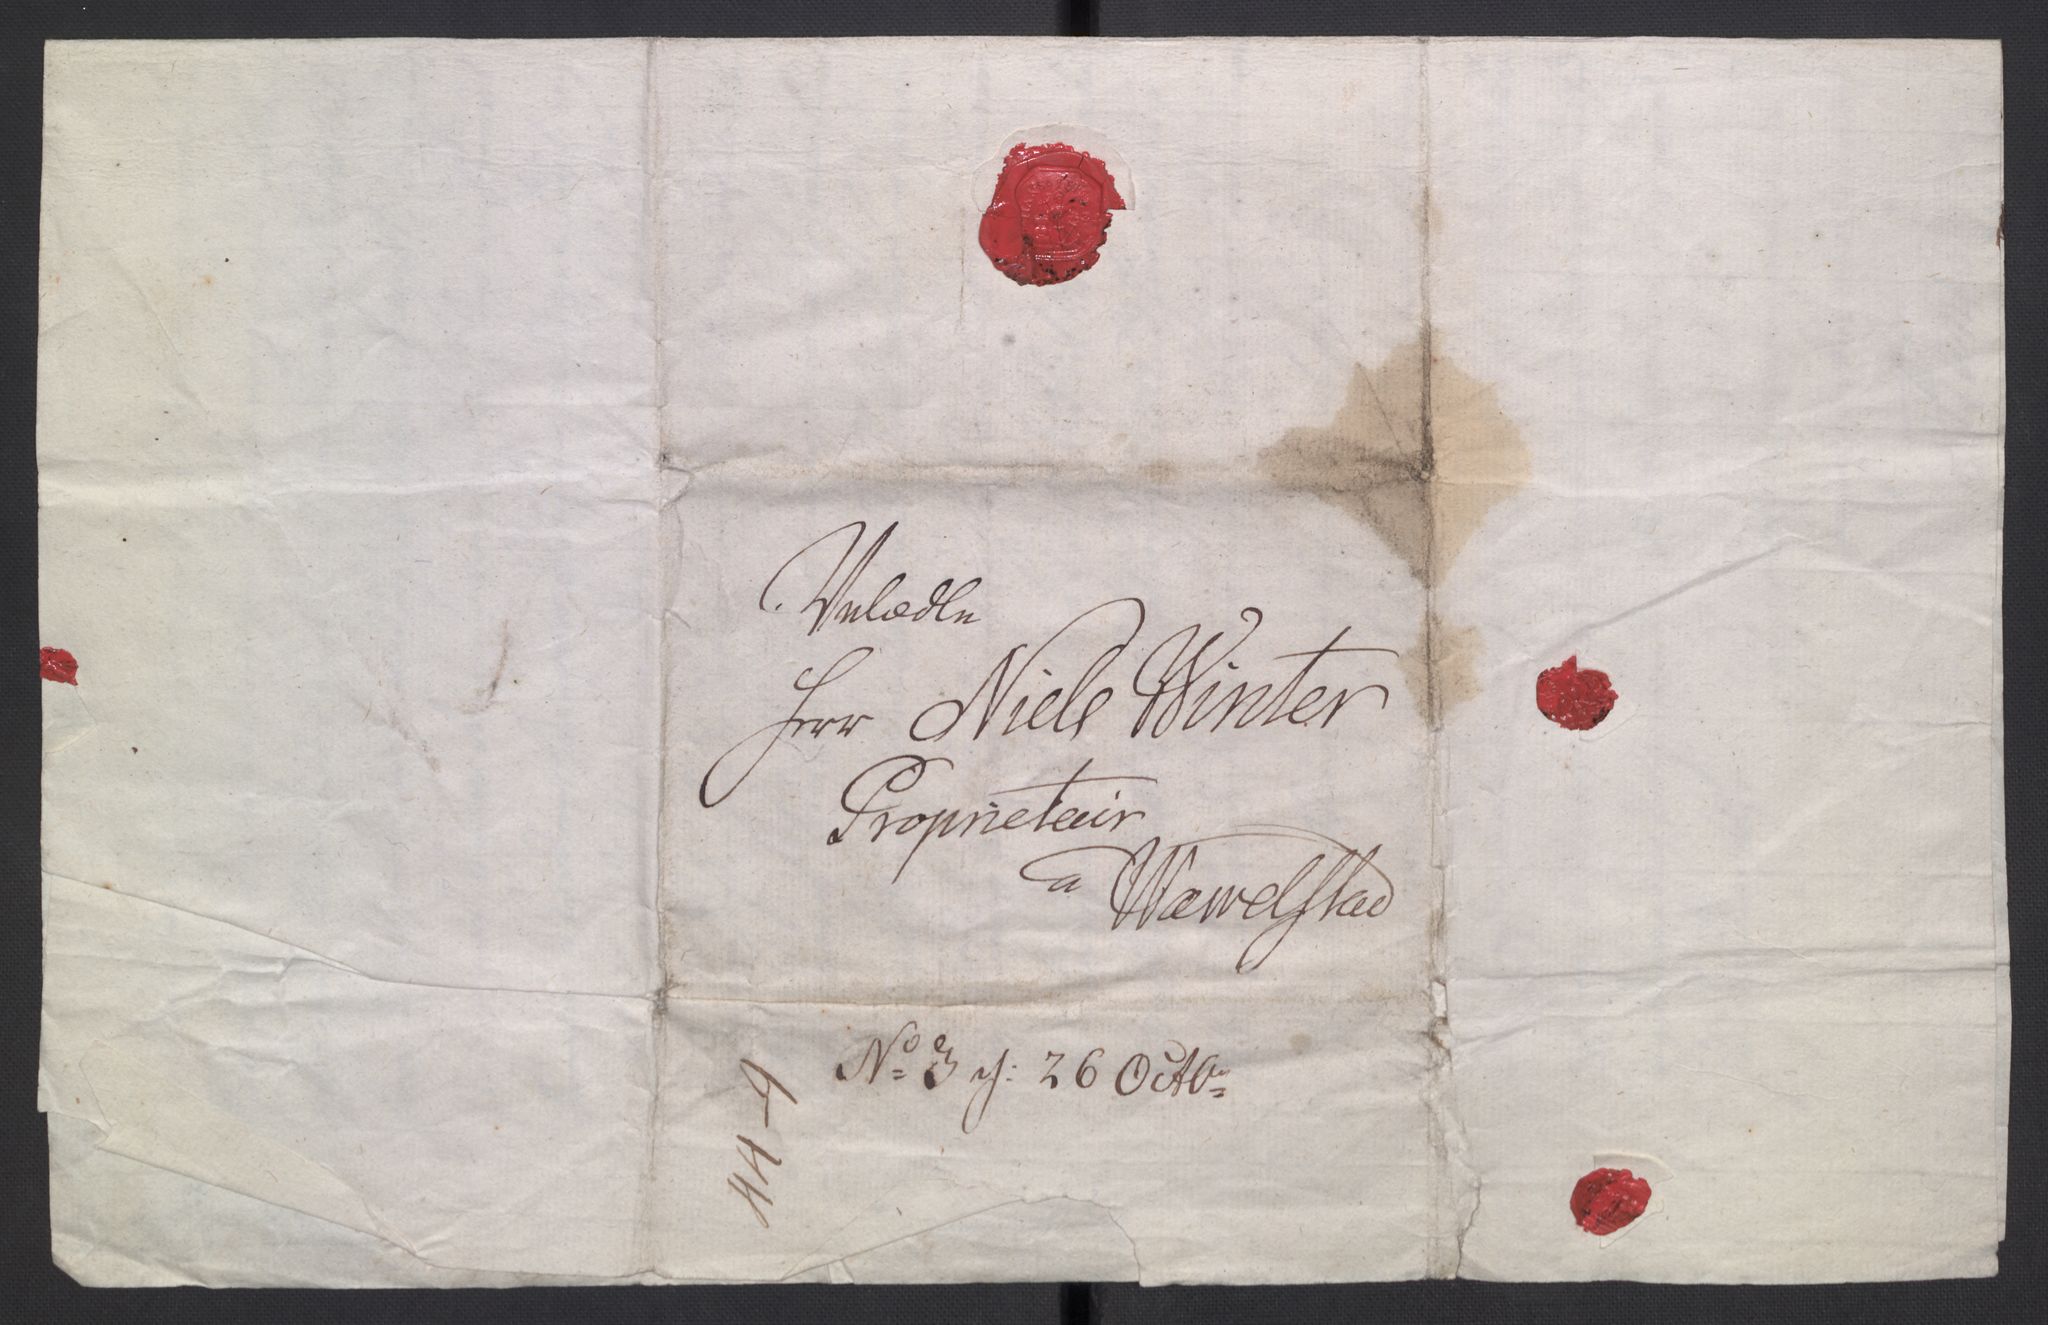 Velædle
Herr Niels Winter
Proprietair
a Wæwelstad
No 3 26 Octbr